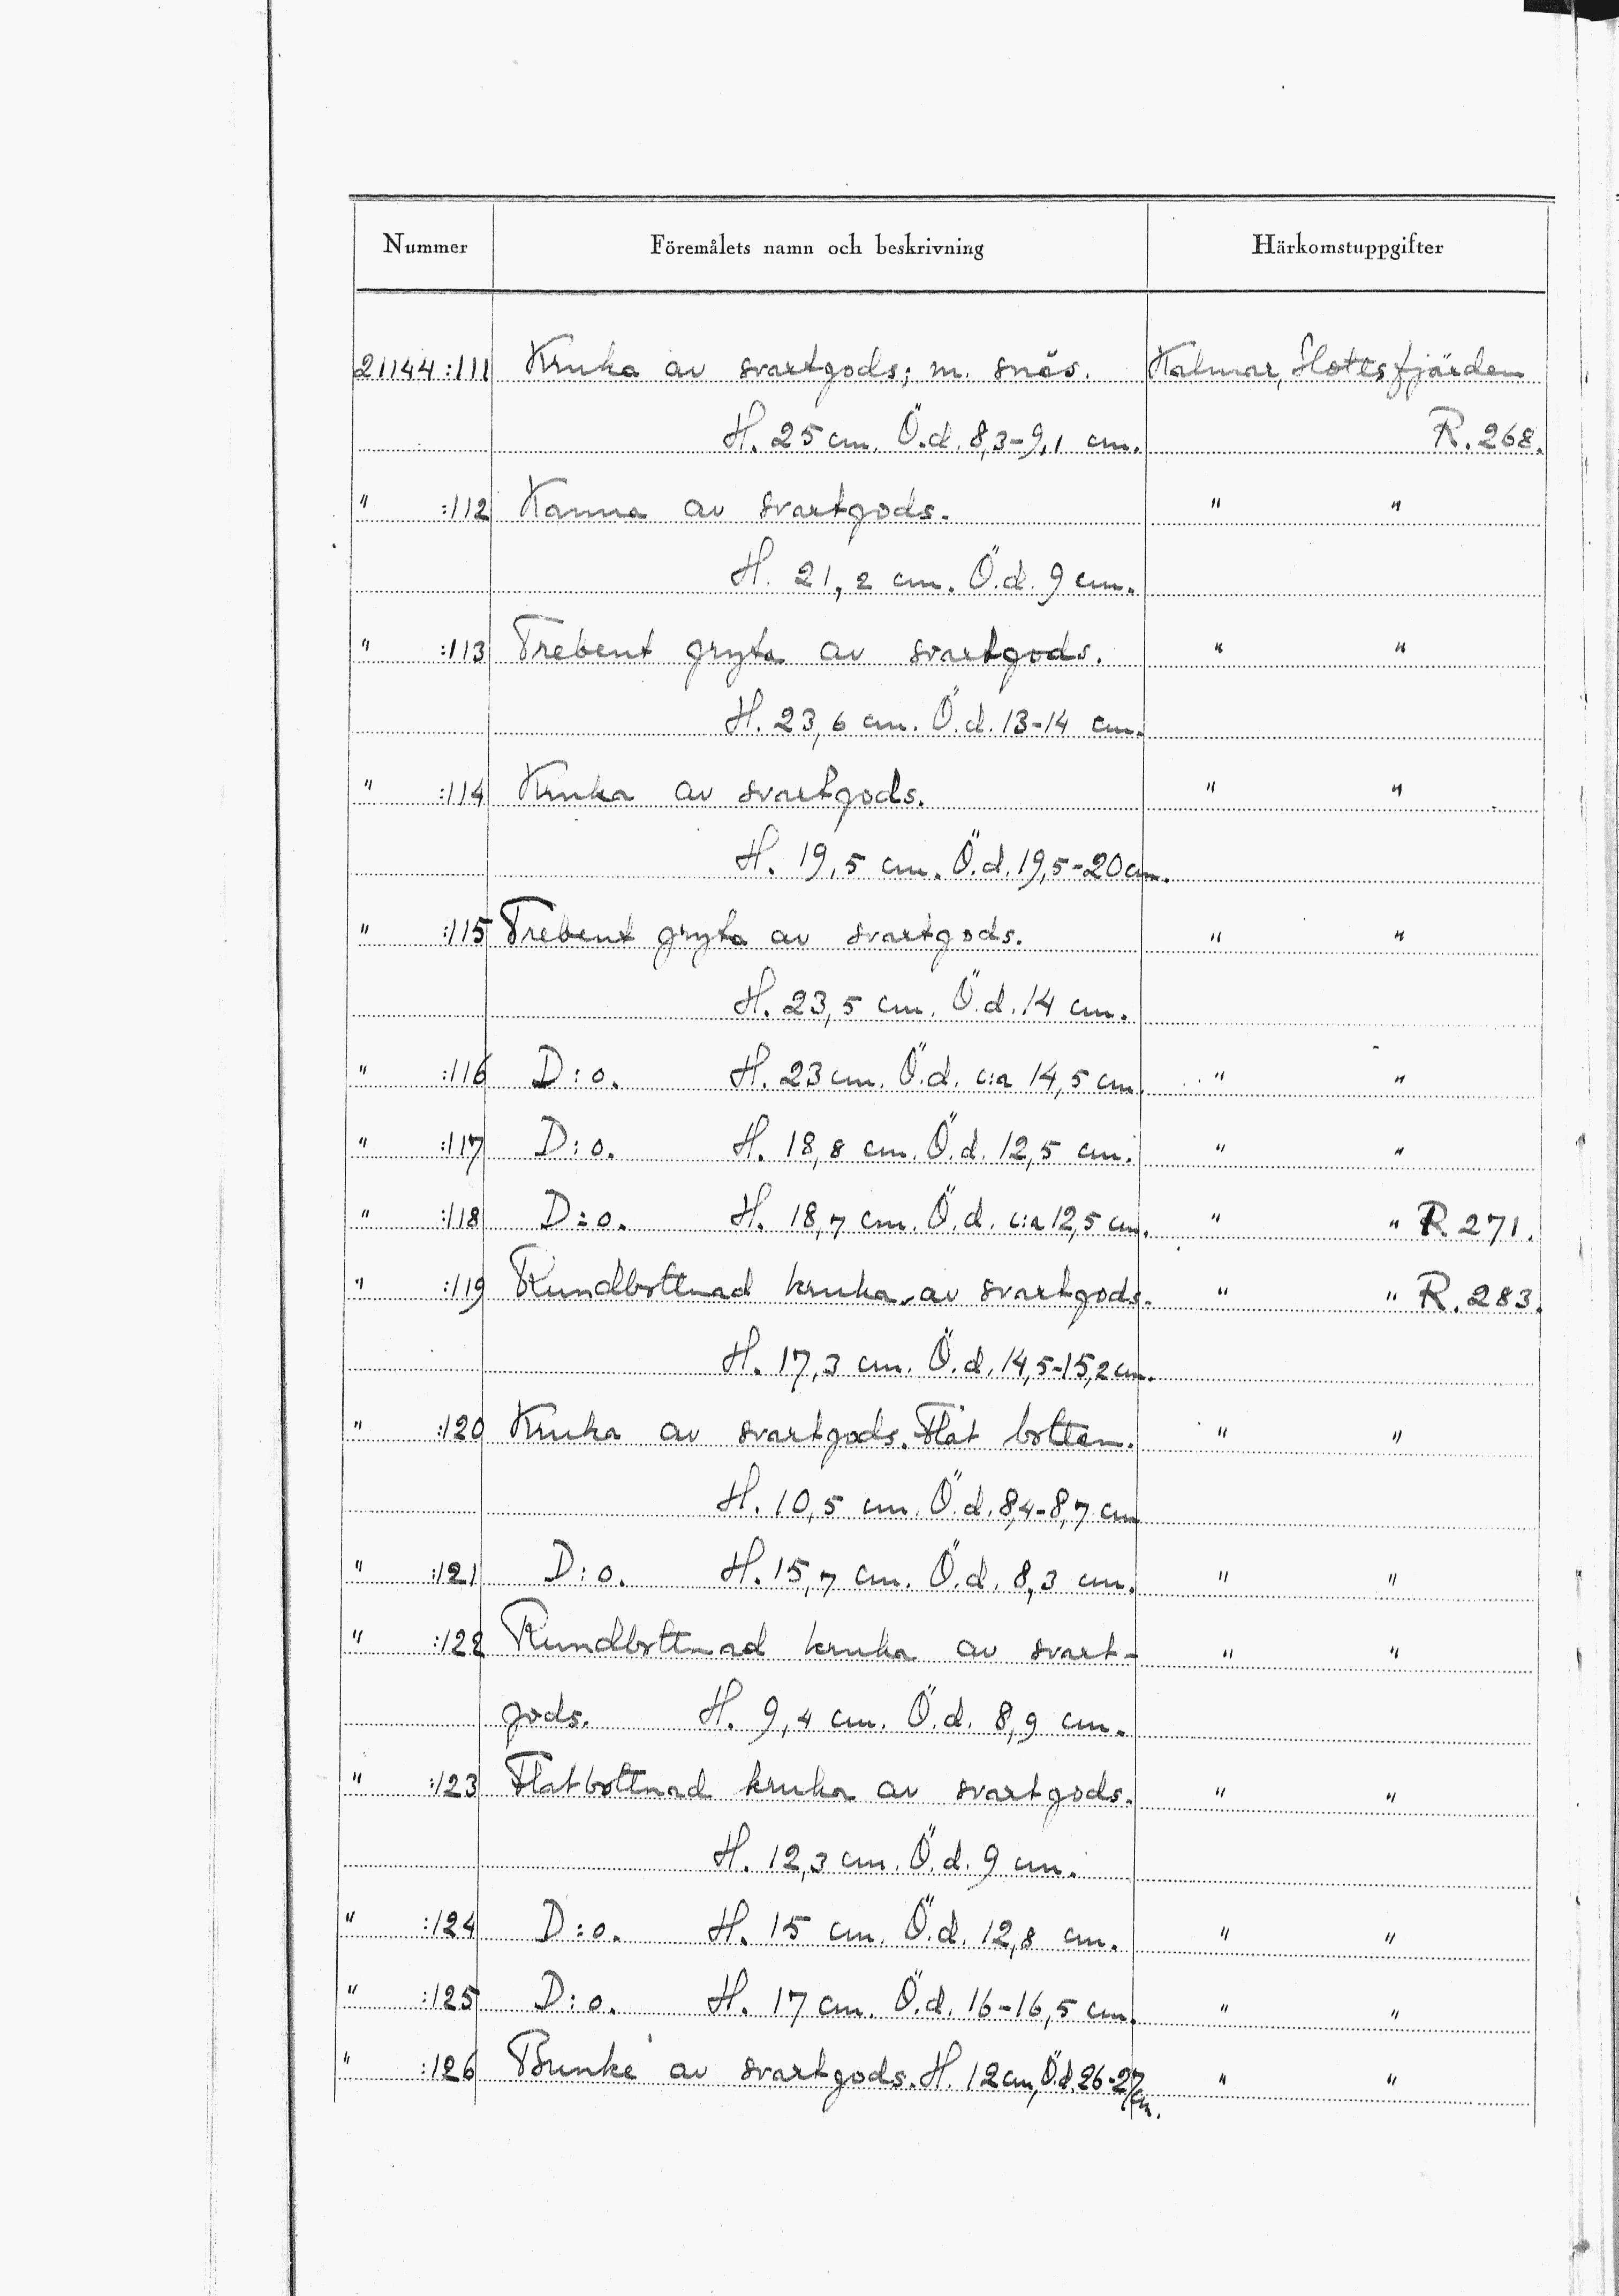 Nummer Föremålets namn och beskrivning Härkomstuppgifter
21144 :111 Kruka av svartgods; m. snås. Kalmar, Slottsfjärden
H. 25 cm. Ö.d. 8,3-9,1 cm. R. 268.
" :112 Kanna av svartgods. " "
H. 21,2 cm. Ö.d. 9 cm.
" :113 Trebent gryta av svartgods. " "
H. 23,6 cm. Ö.d. 13-14 cm.
" :114 Kruka av svartgods. " "
H. 19,5 cm. Ö.d. 19,5-20 cm.
" :115 Trebent gryta av svartgods. " "
H. 23,5 cm. Ö.d. 14 cm.
" :116 D:o. H. 23 cm. Ö.d. c:a 14,5 cm. " "
" :117 D:o. H. 18,8 cm. Ö.d. 12,5 cm. " "
" :118 D:o. H. 18,7 cm. Ö.d. c:a 12,5 cm. " " R. 271.
" :119 Rundbottnad kruka av svartgods. " " R. 283.
H. 17,3 cm. Ö.d. 14,5-15,2 cm.
" :120 Kruka av svartgods. Flat botten. " "
H. 10,5 cm. Ö.d. 8,4-8,7 cm
" :121 D:o. H. 15,7 cm. Ö.d. 8,3 cm. " "
" :122 Rundbottnad kruka av svart- " "
gods. H. 9,4 cm. Ö.d. 8,9 cm.
" :123 Flatbottnad kruka av svartgods. " "
H. 12,3 cm. Ö.d. 9 cm.
" :124 D:o. H. 15 cm. Ö.d. 12,8 cm. " "
" :125 D:o. H. 17 cm. Ö.d. 16-16,5 cm. " "
" :126 Bunke av svartgods. H. 12 cm, Ö.d. 26-27 cm. " "